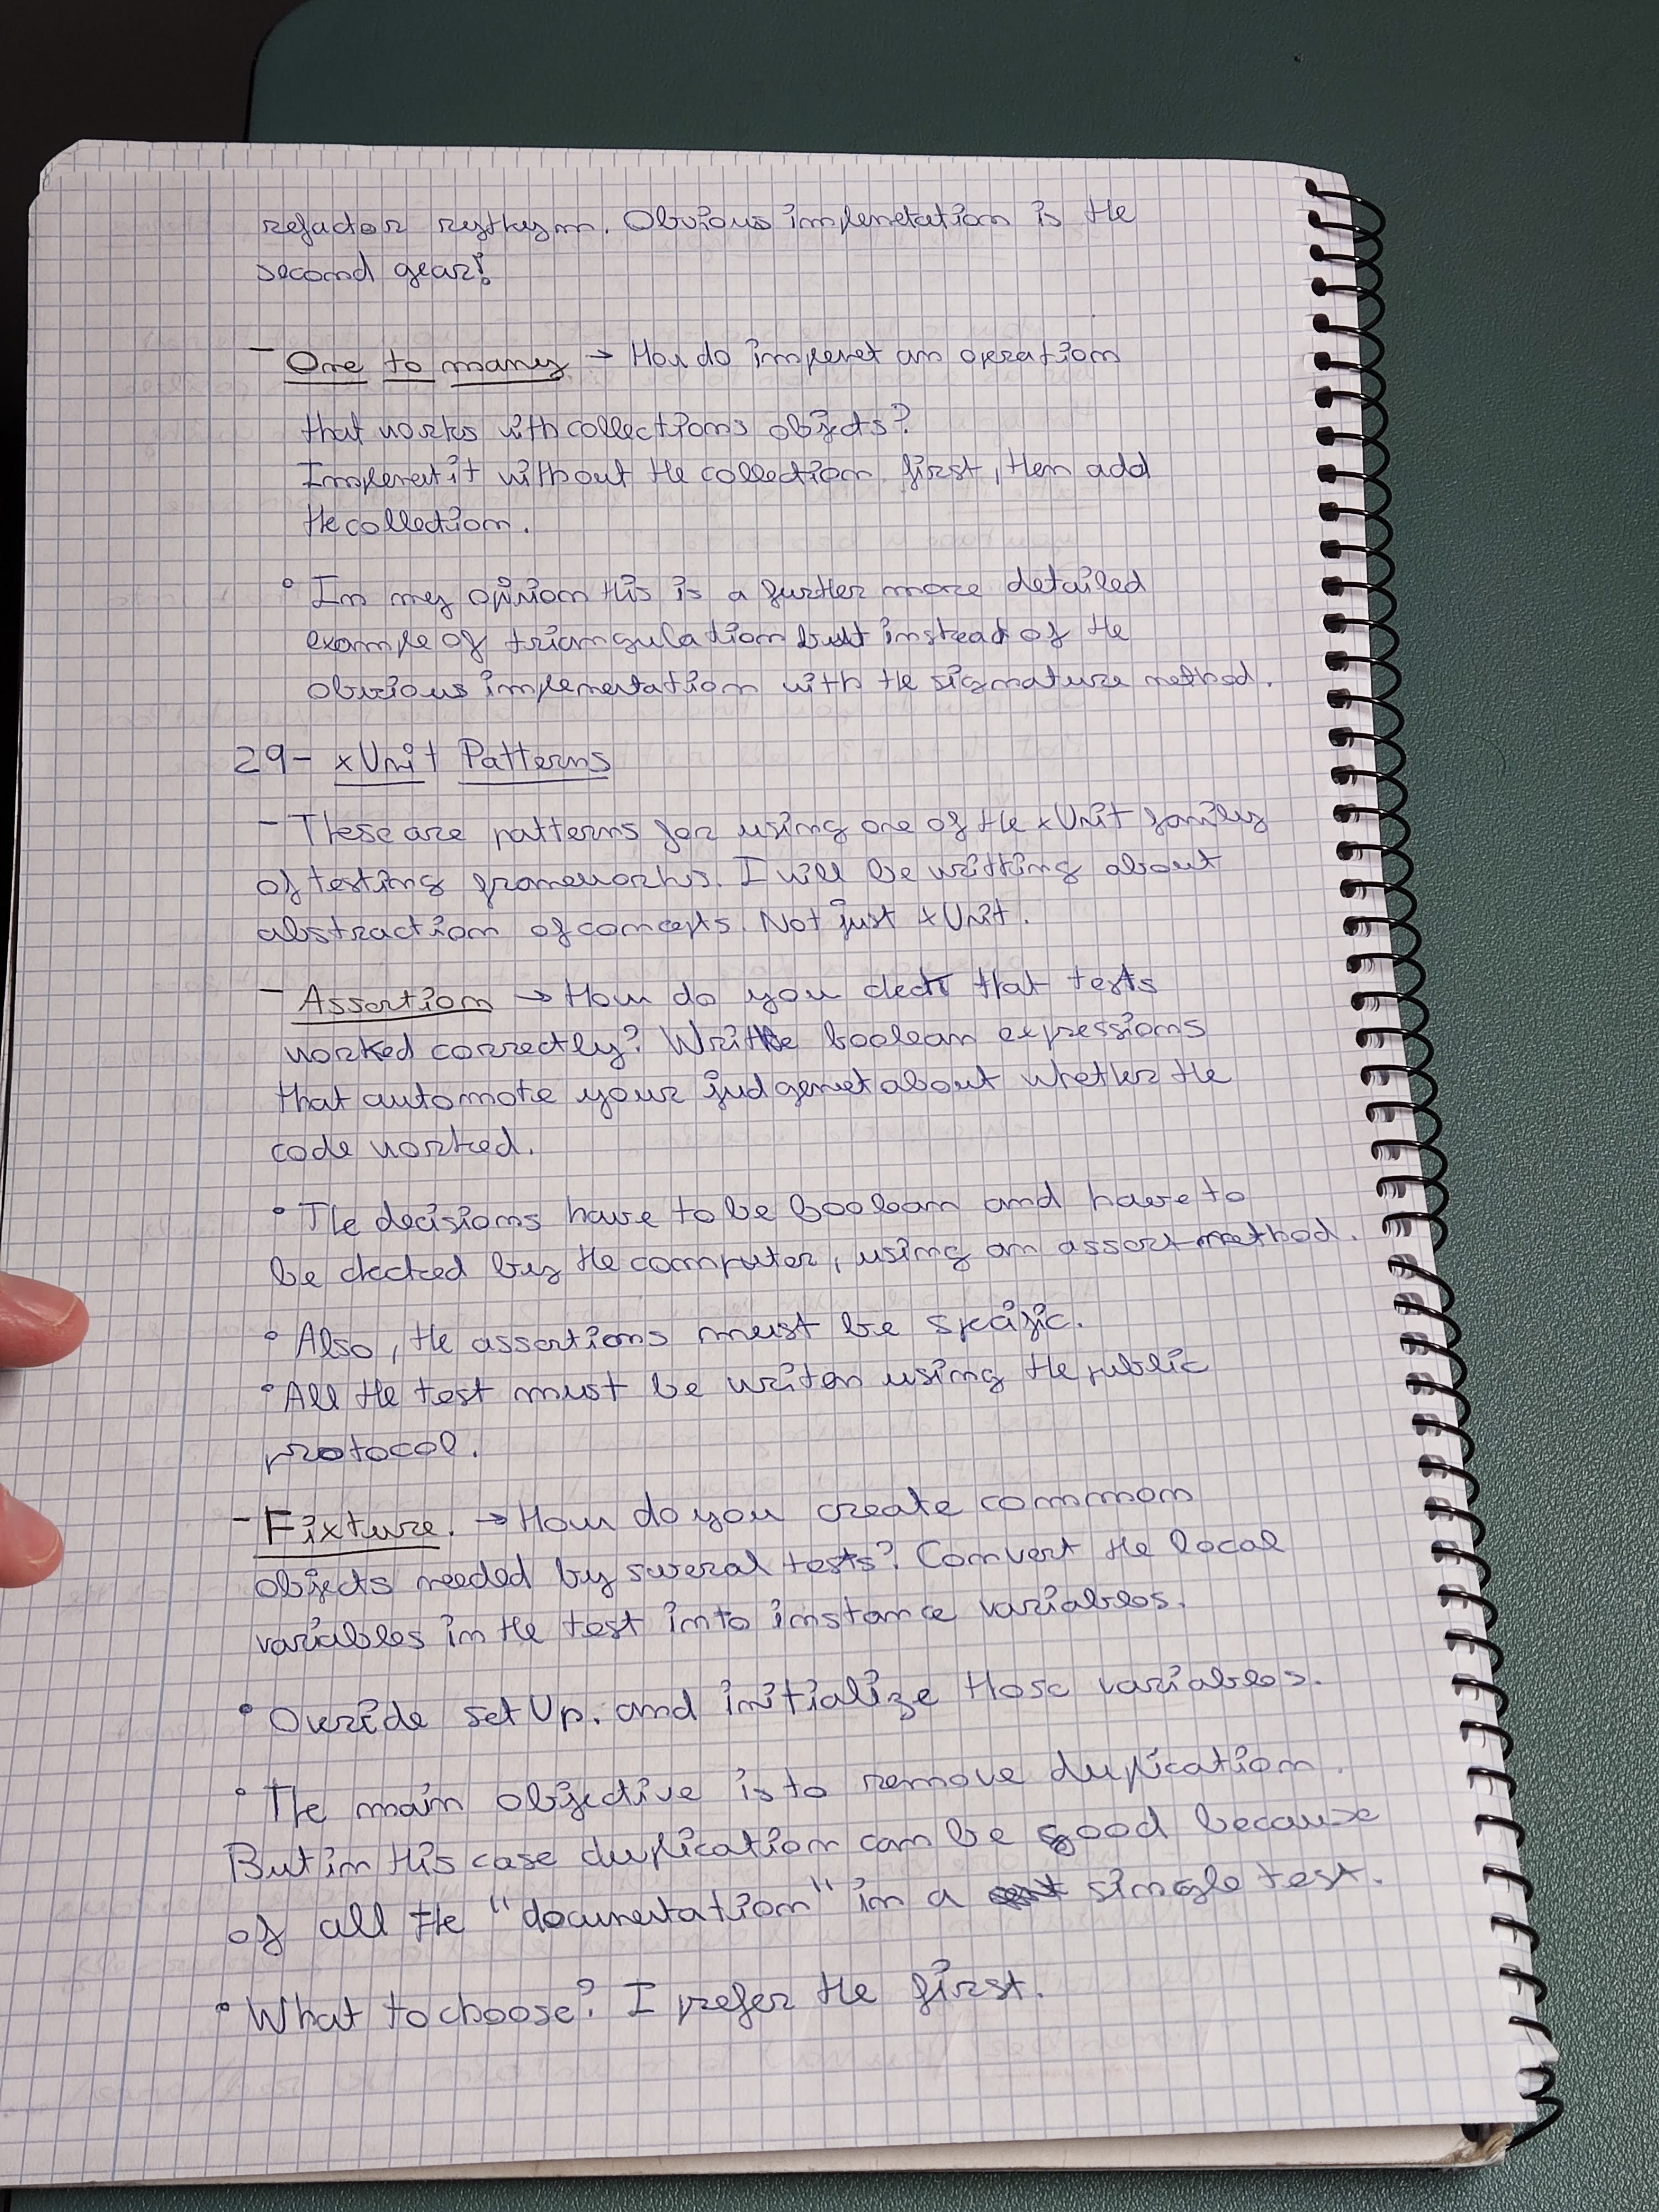 refactor rythym. Obvious implemetation is the
second gear!
- One to many → How do implemet an operation
that works with collections objects?
Implemet it without the collection first, then add
the collection.
• In my opinion this is a further more detailed
example of triangulation but instead of the
obvious implementation with the signature method.
29- xUnit Patterns
- These are patterns for using one of the xUnit family
of testing frameworks. I will be writting about
abstraction of concepts. Not just xUnit.
- Assertion → How do you check that tests
worked correctly? Write boolean expressions
that automate your judgemet about whether the
code worked.
• The decisions have to be boolean and have to
be checked by the computer, using an assert method.
• Also, the assertions must be specific.
• All the test must be writen using the public
protocol.
- Fixture. → How do you create common
objects needed by several tests? Convert the local
variables in the test into instance variables.
• Override setUp. and initialize those variables.
• The main objective is to remove duplication.
But in this case duplication can be good because
of all the "documentation" in a single test.
• What to choose? I prefer the first.